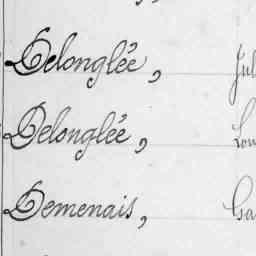 Delonglée, Jul
Delonglée, Lou
Demenais, Ga